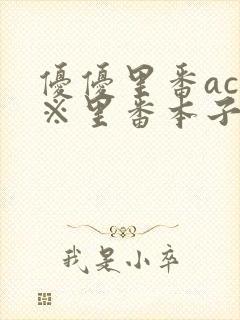 優優里番ac
※里番本子
我是小卒